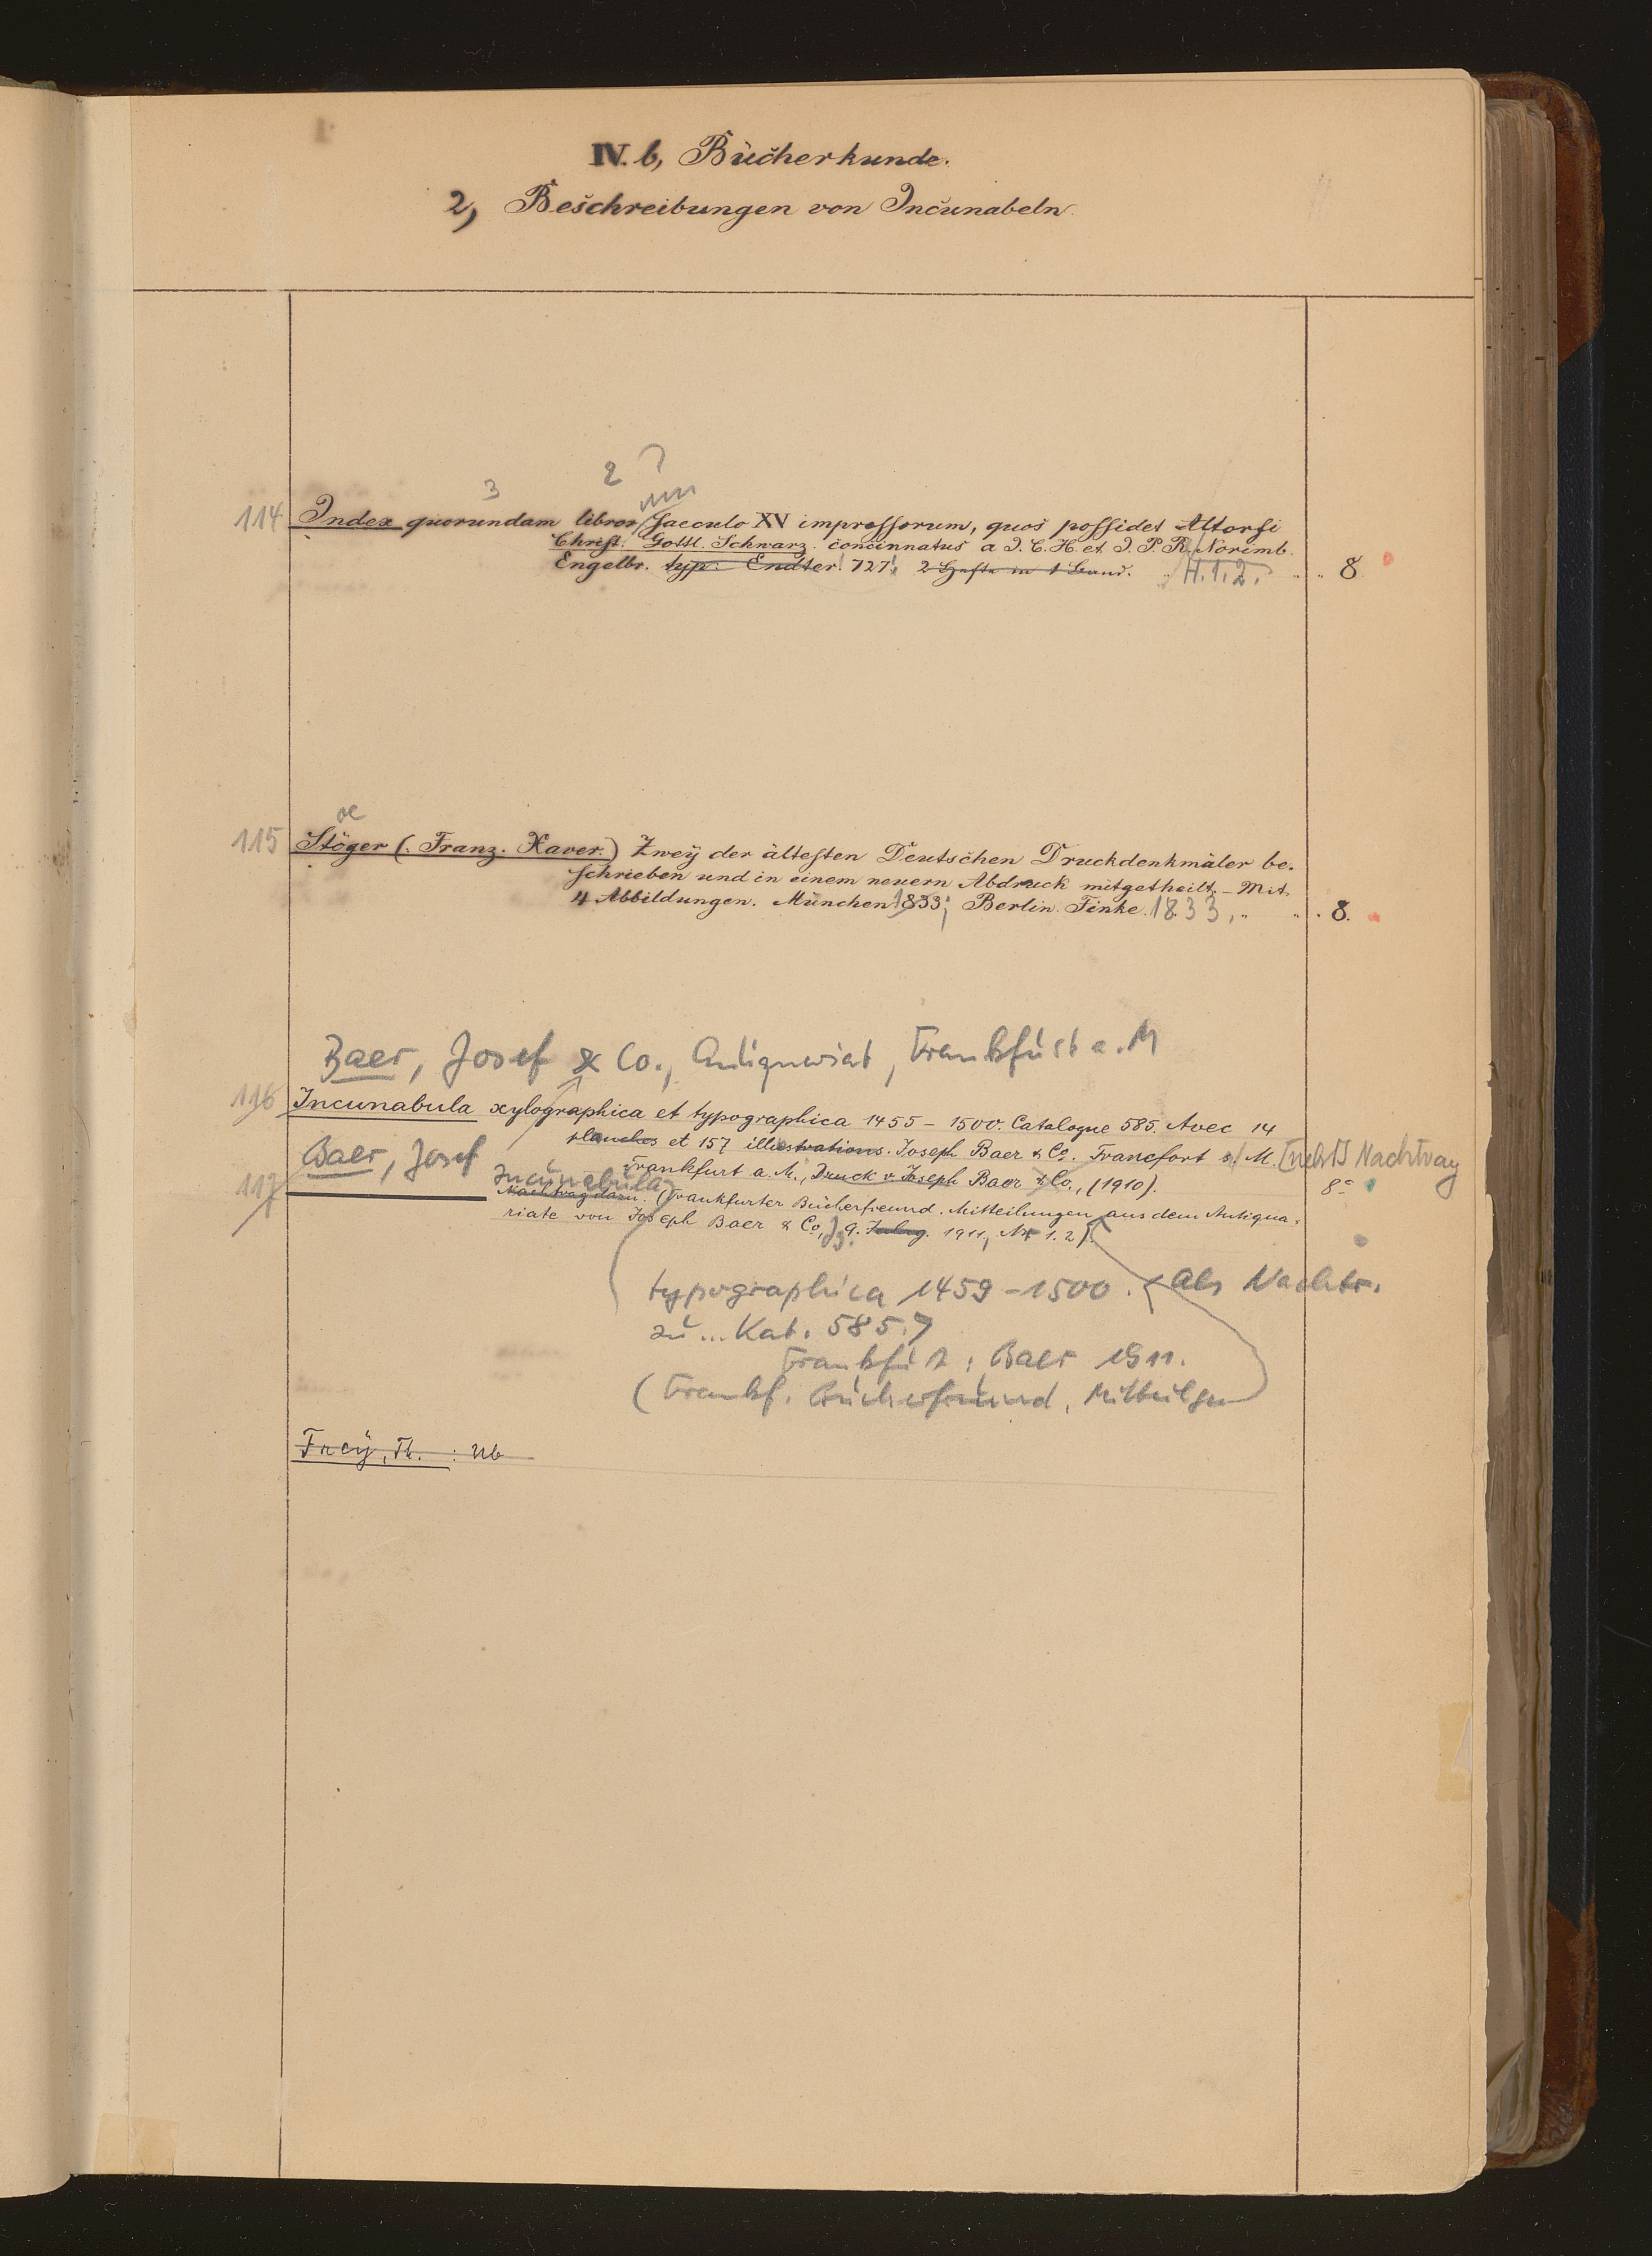 IV. b, Bücherkunde.
2, Beschreibungen von Incunabeln
3 2
114 Index quorundam libror um saeculo XV impressorum, quos possidet Altorfi
Christ. Gottl. Schwarz concinnatus a J. C. H. et J. P. R. Norimb.
Engelbr. typ. Endter 727. 2 Hefte in 1 Band. H. 1. 2. 8
oe
115 Stöger (Franz. Xaver.) Zweÿ der ältesten Deutschen Druckdenkmäler be-
schrieben und in einem neuern Abdruck mitgetheilt. – Mit
4 Abbildungen. München 1833; Berlin. Finke. 1833. 8.
Baer, Josef & Co., Antiquariat, Frankfurt a. M
116 Incunabula xylographica et typographica 1455 – 1500. Catalogue 585. Avec 14
planches et 157 illustrations. Joseph Baer & Co. Francfort s/M. [nebst] Nachtrag
Baer, Josef
Frankfurt a. M., Druck v. Joseph Baer & Co., (1910). 8°
117 Incunabula
Nachtrag dazu. (Frankfurter Bücherfreund. Mitteilungen aus dem Antiqua-
riate von Joseph Baer & Co, Jg. 9. Jahrg. 1911, Nr 1. 2).
typographica 1459 – 1500. <Als Nachtr.
zu ... Kat. 585.>
Frankfurt: Baer 1911.
(Frankf. Bücherfreund, Mitteilgn
Freÿ, Th. : Ub